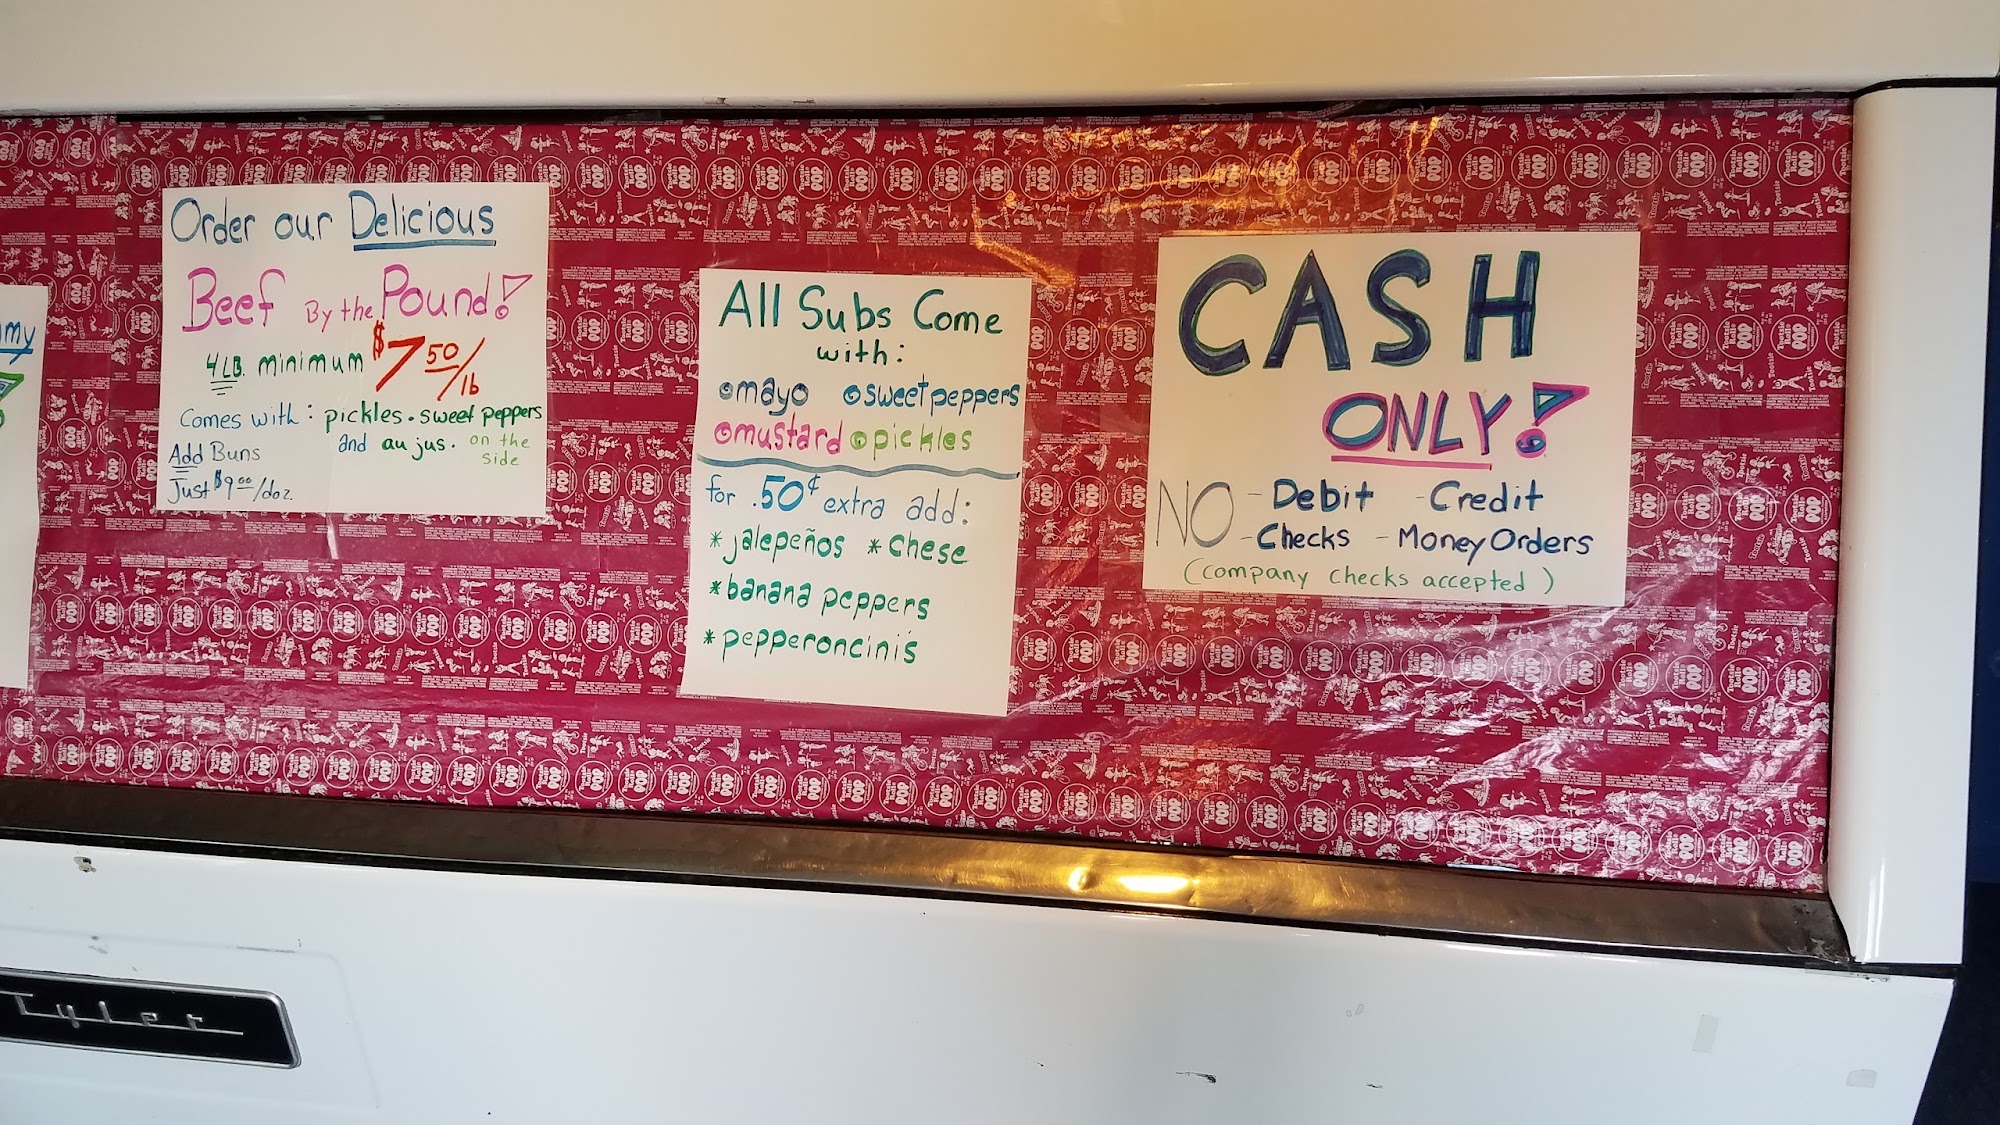 my
Order our Delicious
Beef By the Pound!
4 LB. minimum $7 50/lb
Comes with: pickles. sweet peppers
and au jus. on the side
Add Buns
Just $9 00/doz.
All Subs Come
with:
mayo sweet peppers
mustard pickles
for .50¢ extra add:
* jalepeños * chese
* banana peppers
* pepperoncinis
CASH
ONLY!
NO - Debit - Credit
- Checks - Money Orders
(company checks accepted)
Tootsie Roll POP
Tyler